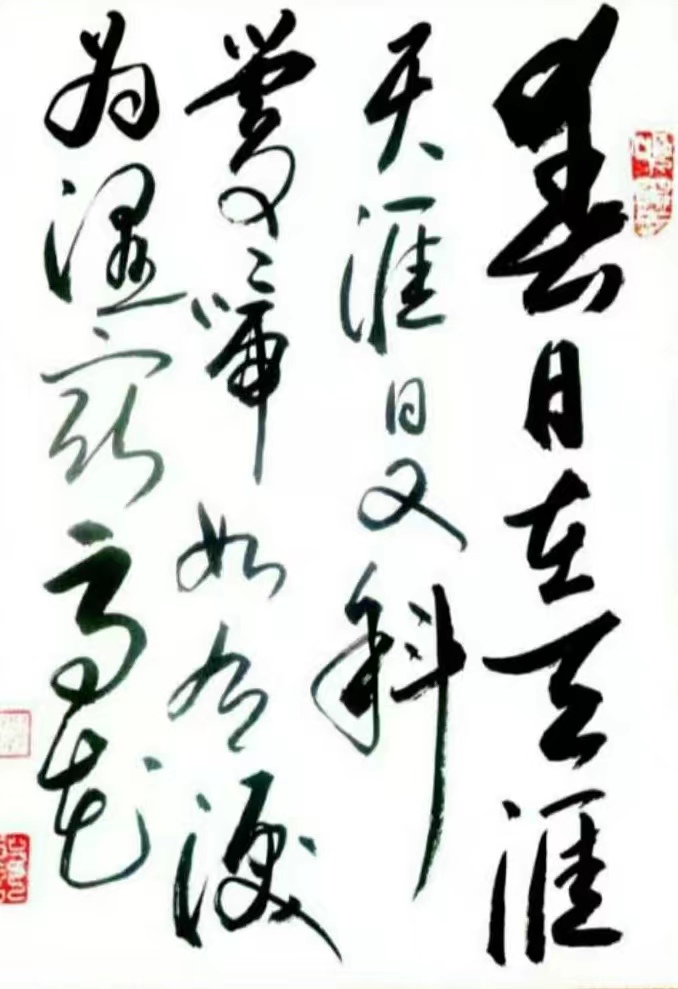 春日在天涯
天涯日又斜
鶯啼如有淚
為濕最高花